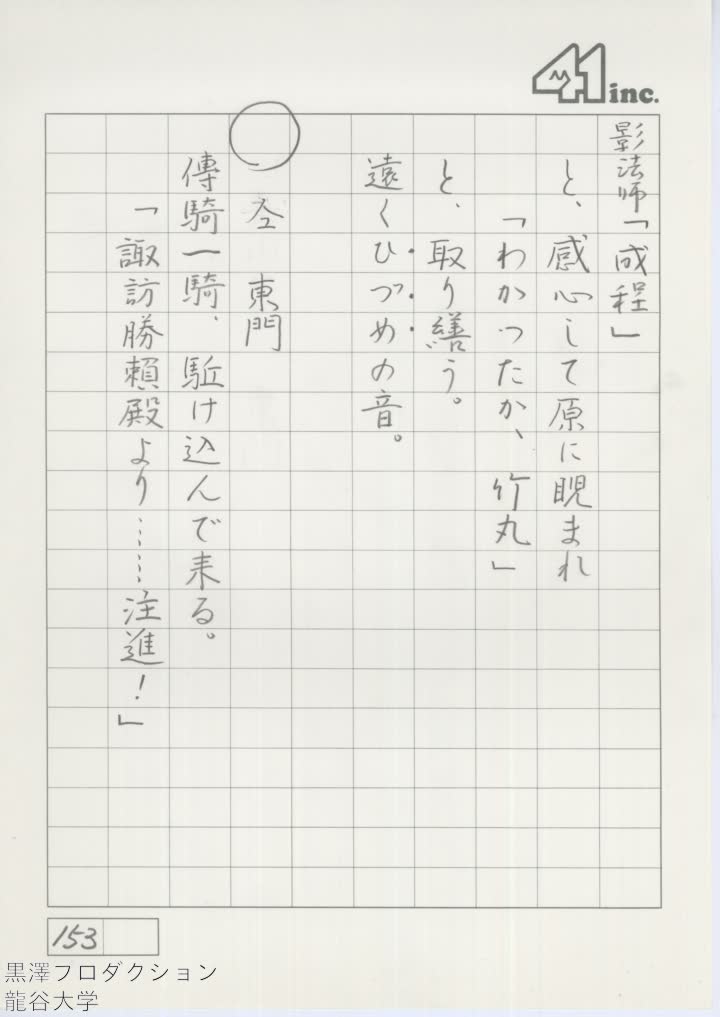 41 inc.
影法師「成程」
と、感心して原に睨まれ
「わかったか、竹丸」
と、取り繕う。
遠くひづめの音。
○ 仝 東門
傳騎一騎、駈け込んで来る。
「諏訪勝頼殿より……注進！」
153
黒澤プロダクション
龍谷大学